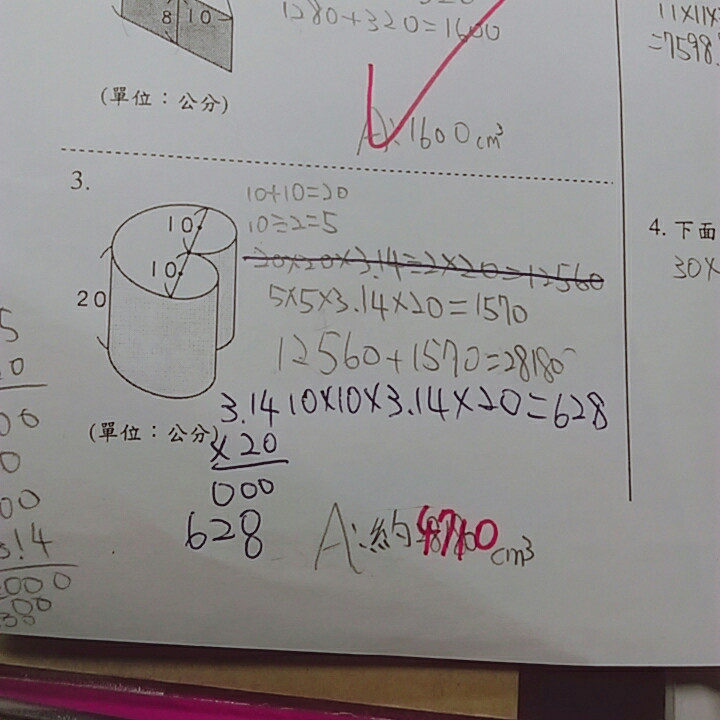 8 10
1280+320=1600
(單位：公分)
A:1600cm³
11×11×
=7598.
3.
10+10=20
10÷2=5
20×20×3.14÷2×20=12560
5×5×3.14×20=1570
12560+1570=28180
10
10
20
(單位：公分)
10×10×3.14×20=628
3.14
×20
000
628
A:約4710cm³
4. 下面
30×
5
0
00
0
00
3.14
000
00